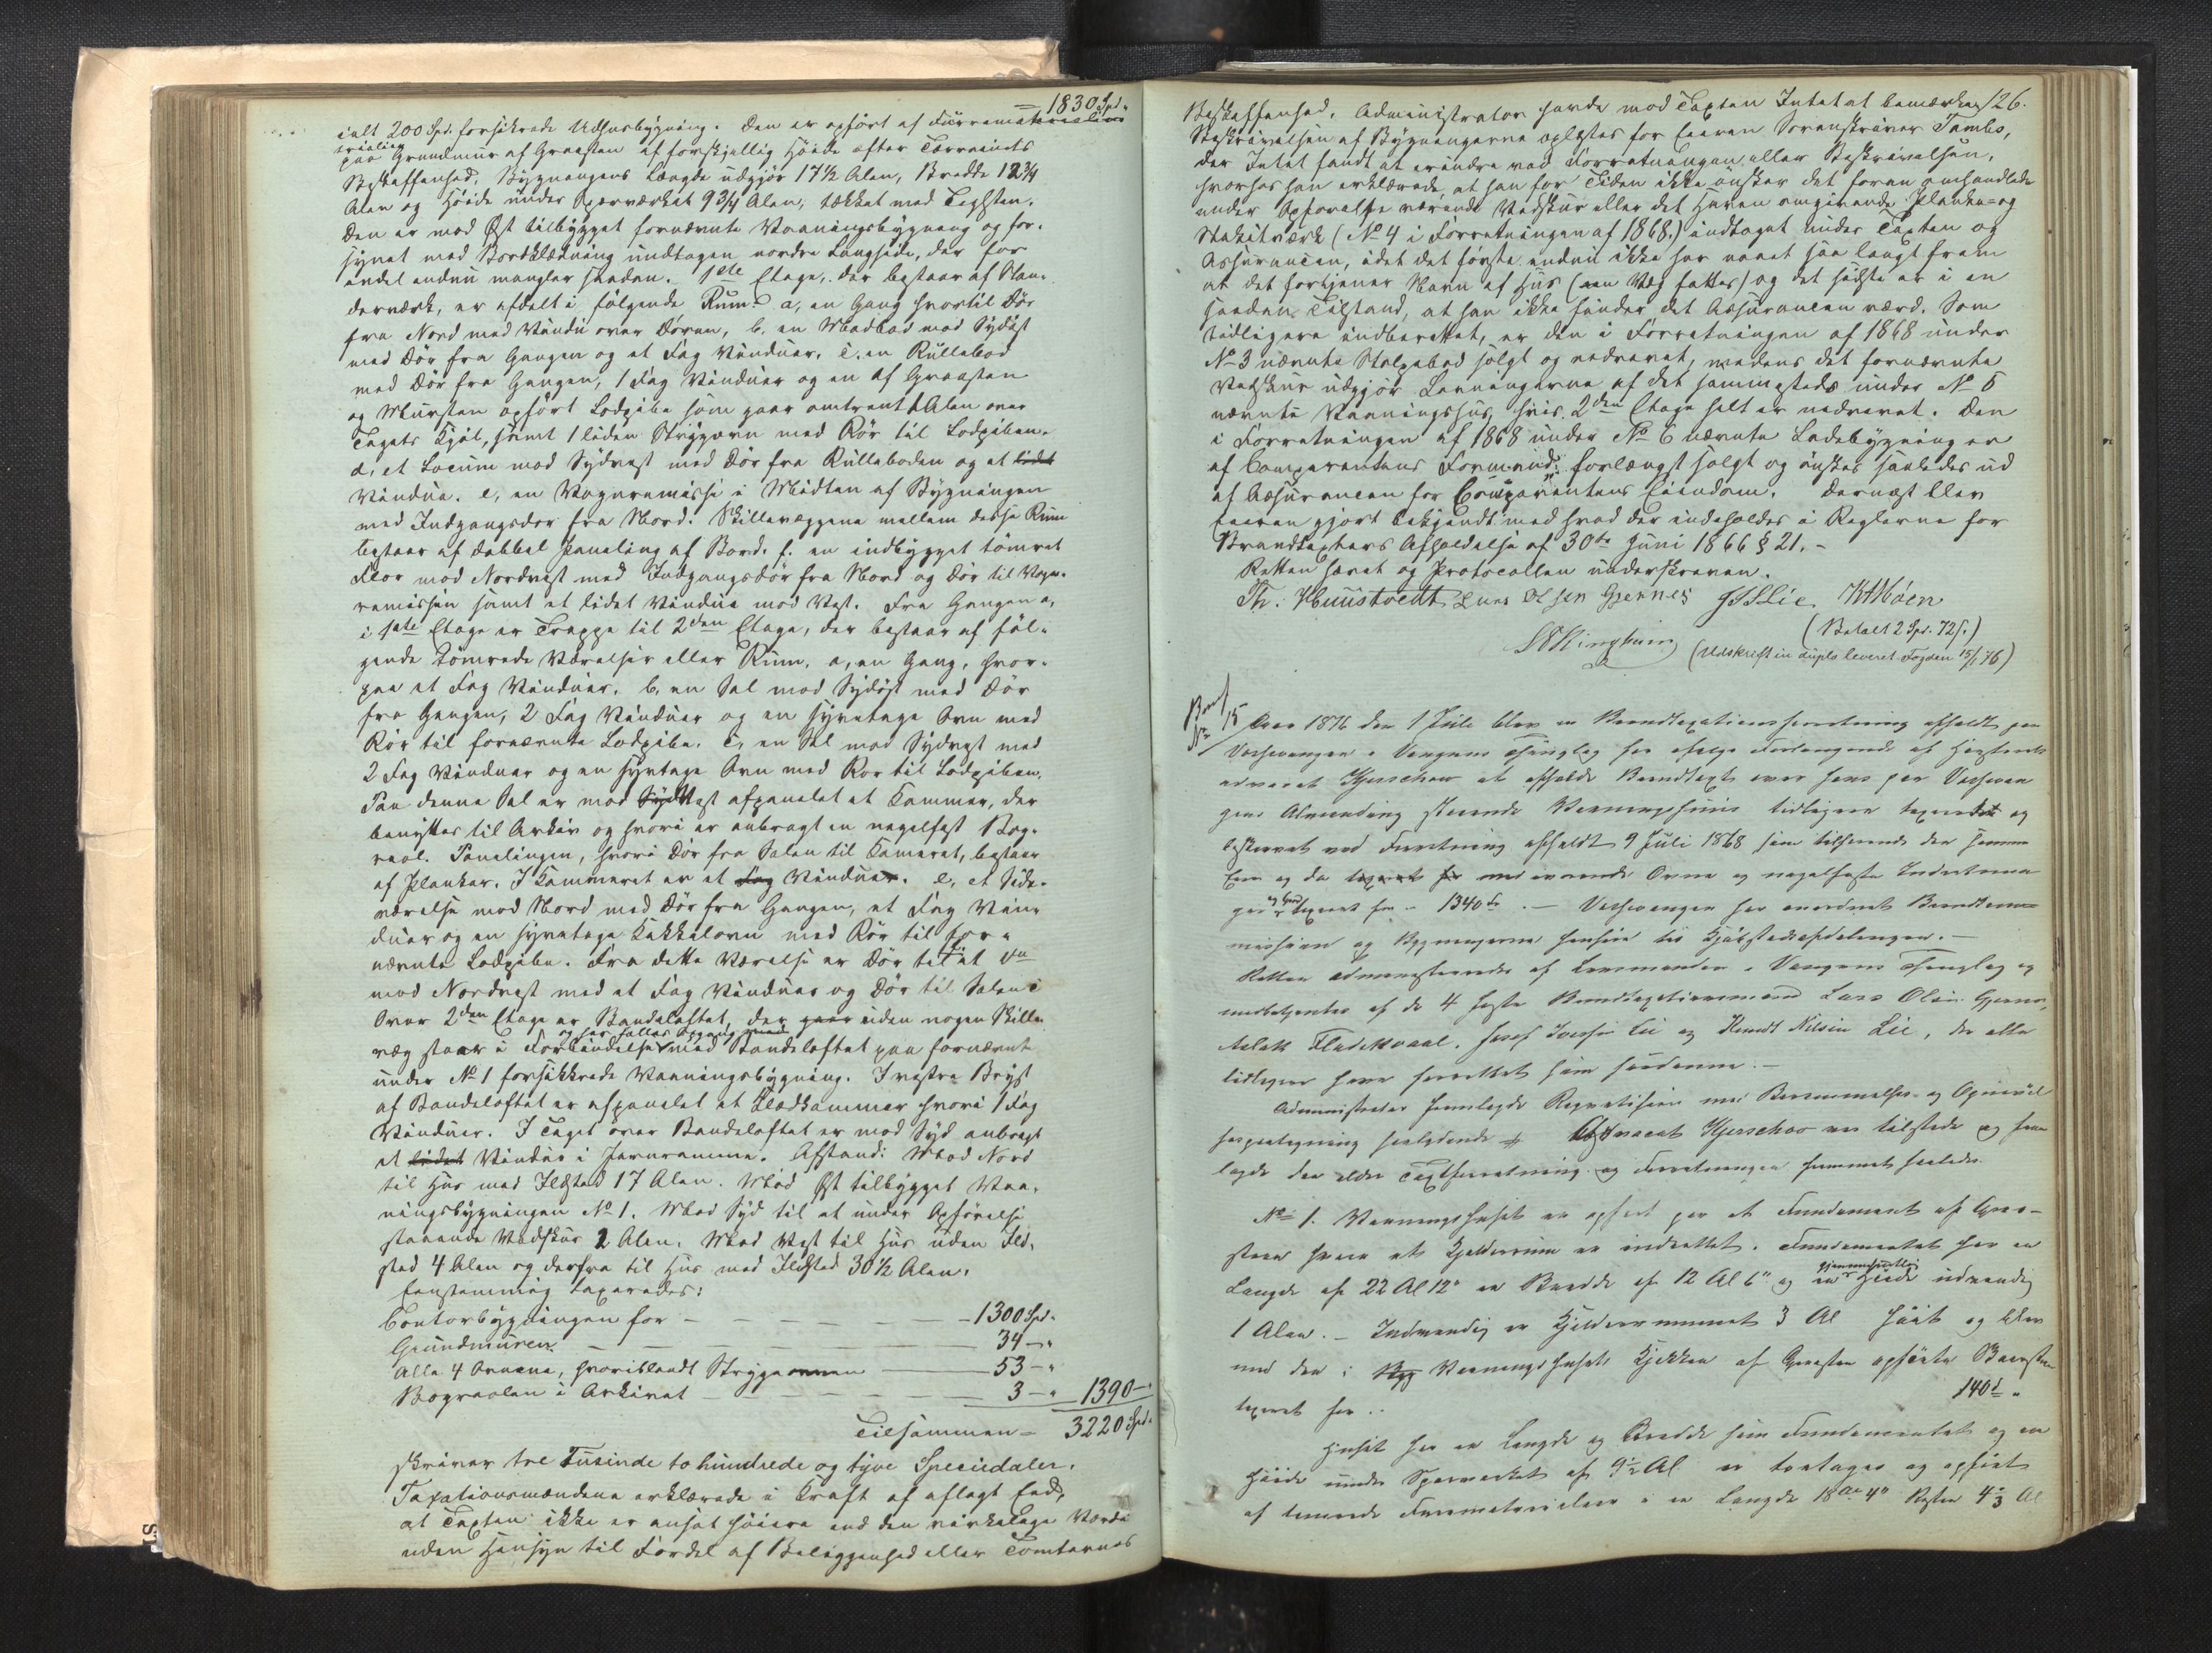 = 1830 Spd.
ialt 200 Spd. forsikrede Udhusbygning. Den er opført af Furrematerialier
paa Grundmur af Graasten af forskjellig Höide efter Terrainets
Beskaffenhed. Bygningens Længde udgjör 17½ Alen, Bredde 12¾
Alen og Höide under Sperreværket 9¾ Alen, tækket med Teglsten.
Den er mod Øst tilbygget fornævnte Vaaningsbygning og for-
synet med Bordklædning undtagen nordre Langside, der for
endel endnu mangler saadan. 1ste Etage, der bestaar af Sten-
derværk, er afdelt i følgende Rum: a, en Gang hvortil Dör
fra Nord med Vindu over Dören, b, en Madbod mod Sydöst
med Dör fra Gangen og et Fag Vinduer. c. en Rullebod
med Dör fra Gangen, 1 Fag Vinduer og en af Graasten
og Mursten opført Lodpibe som gaar omtrent 1 Alen over
Tagets Kjöl, samt 1 liden Strygeovn med Rör til Lodpiben.
d, et Locum mod Sydvest med Dör fra Rulleboden og et lidet
Vindue. e, en Vognremisse i Midten af Bygningen
med Indgangsdør fra Nord. Skillevæggene mellem disse Rum
bestaar af dobbel Paneling af Bord. f. en indbygget tömret
Flor mod Nordvest med Indgangsdör fra Nord og Dör til Vogn-
remissen samt et lidet Vindue mod Vest. Fra Gangen a,
i 1ste Etage er Trappe til 2den Etage, der bestaar af föl-
gende tömrede Værelser eller Rum, a, en Gang, hvor-
paa et Fag Vinduer. b, en Sal mod Sydöst med Dör
fra Gangen, 2 Fag Vinduer og en Ovn med
Rör til fornævnte Lodpibe. c, en Sal mod Sydvest med
2 Fag Vinduer og en Ovn med Rør til Lodpiben.
Paa denne Sal er mod Vest afpanelet et Kammer, der
benyttes til Arkiv og hvori er anbragt en nagelfast Bog-
reol. Panelingen, hvori Dör fra Salen til Kameret, bestaar
af Planker. I Kammeret er et Fag Vinduer. e, et Side-
værelse mod Nord med Dör fra Gangen, et Fag Vin-
duer og en Kakkelovn med Rör til for-
nævnte Lodpibe. Fra dette Værelse er Dör til et do
mod Nordvest med et Fag Vinduer og Dör til Salen c
Over 2den Etage er Bandeloftet, der gaar uden nogen Skille-
og har fælles Opgang med
væg staar i Forbindelse med Bandeloftet paa fornævnte
under No 1 forsikkrede Vaaningsbygning. I vestre Bryst
af Bandeloftet er afpanelet et Klædkammer hvori 1 Fag
Vinduer. I Taget over Bandeloftet er mod Syd anbragt
et lidet Vindue i Jernramme. Afstand: Mod Nord
til Hus med Ildsted 17 Alen. Mod Øst tilbygget Vaa-
ningsbygningen No 1. Mod Syd til et under Opförelse
staaende Vedskur 2 Alen. Mod Vest til Hus uden Ild-
sted 4 Alen og derfra til Hus med Ildsted 30½ Alen.
Eenstemmig taxeredes:
Contorbygningen for - - - - 1300 Spd.
Grundmuren - - - 34 - "
Alle 4 Ovnene, hvoriblandt Strygeovnen 53 - "
Bogreolen i Arkivet - - - - 3 - " 1390 - "
Tilsammen = 3220 Spd.
skriver tre Tusinde to hundrede og tyve Speciedaler.
Taxationsmændene erklærede i Kraft af aflagt Eed,
at Taxten ikke er ansat höiere end den virkelige Værdi
uden Hensyn til Fordel af Beliggenhed eller Tomternes
126.
Beskaffenhed. Administrator havde mod Taxten Intet at bemærke.
Beskrivelsen af Bygningerne oplæstes for Eieren Sorenskriver Tambs,
der Intet fandt at erindre ved Forretningen eller Beskrivelsen,
hvorhos han erklærede, at han for Tiden ikke önsker det foran omhandlede
under Opførelse værende Vedskur eller det Haven omgivende Planke- og
Stakitværk (No 4 i Forretningen af 1868) indtaget under Taxten og
Assurancen, idet det første endnu ikke har naaet saa langt frem
at det fortjener Navn af Hus (een Væg fattes) og det sidste er i en
saadan Tilstand, at han ikke finder det Assurancen værd. Som
tidligere indberettet, er den i Forretningen af 1868 under
No 3 nævnte Stolpebod solgt og nedrevet, medens det fornævnte
Vedskur udgjør Levningerne af det sammesteds under No 5
nævnte Vaaningshus, hvis 2den Etage helt er nedrevet. Den
i Forretningen af 1868 under No 6 nævnte Ladebygning er
af Comparentens Formand forlængst solgt og önskes saaledes ud
af Assurancen for Comparentens Eiendom. Dernæst blev
Eieren gjort bekjendt med hvad der indeholdes i Reglerne for
Brandtaxters Afholdelse af 30te Juni 1866 § 21. -
Retten hævet og Protocollen underskreven.
Th. Huustvedt Lars Olsen Gjernes J I Lie K N Moen
(Betalt 2 Spd. 72 s.)
(Udskrift in duplo leveret Fogden 15/1 76)
15 Aar 1876 den 1 Juli blev en Brandtaxationsforretning afholdt paa
Vossevangen i Vangens Thinglag for efter Forlangende af Höiesterets-
advocat Hjerschow at afholde Brandtaxt over hans paa Vossevan-
gens Almending staaende Vaaningshuus tidligere taxeret og
beskrevet ved Forretning afholdt 9 Juli 1868 som tilhørende den samme
Eier og da med iværende Ovne og nagelfaste Indretninger
taxeret for 1340 Sp. - Vossevangen har anordnet Brandkom-
mission og Bygningerne henhøre til Kjöbstadafdelingen. -
Retten administreredes af Lensmanden i Vangens Thinglag og
medbetjentes af de 4 faste Brandtaxationsmænd Lars Olsen Gjernes,
Aslak Fladekvaal, Josef Iversen Lie og Knudt Nilsen Lie, der alle
tidligere have forrettet som saadanne. -
Administrator fremlagde Requisition med Berammelses- og Opnævnel-
sespaategning saalydende # Advocat Hjerschow var tilstede og frem-
lagde den ældre Taxtforretning og Forretningen fremmet saaledes.
No 1. Vaaningshuset er opført paa et Fundament af Graa-
steen hvori et Kjelderrum er indrettet. Fundamentet har en
gjennemsnitlig
Længde af 22 Al 12" en Bredde af 12 Al 6" og en Höide udvendig
1 Alen. - Indvendig er Kjelderrummet 3 Al höit og blev
med den i Vaaningshusets Kjøkken af Graasten opførte
taxeret for .. 140 d "
Huset har en Længde og Bredde som Fundamentet og en
Höide under Sperreværket af 9½ Al er toetages og opført
af tømrede Furrematerialier i en Længde 18 Al 4"